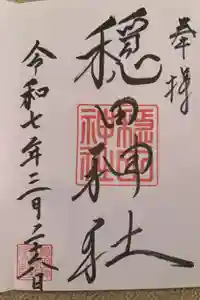 奉拝
穏田神社
穏田
神社
令和七年三月二十 日